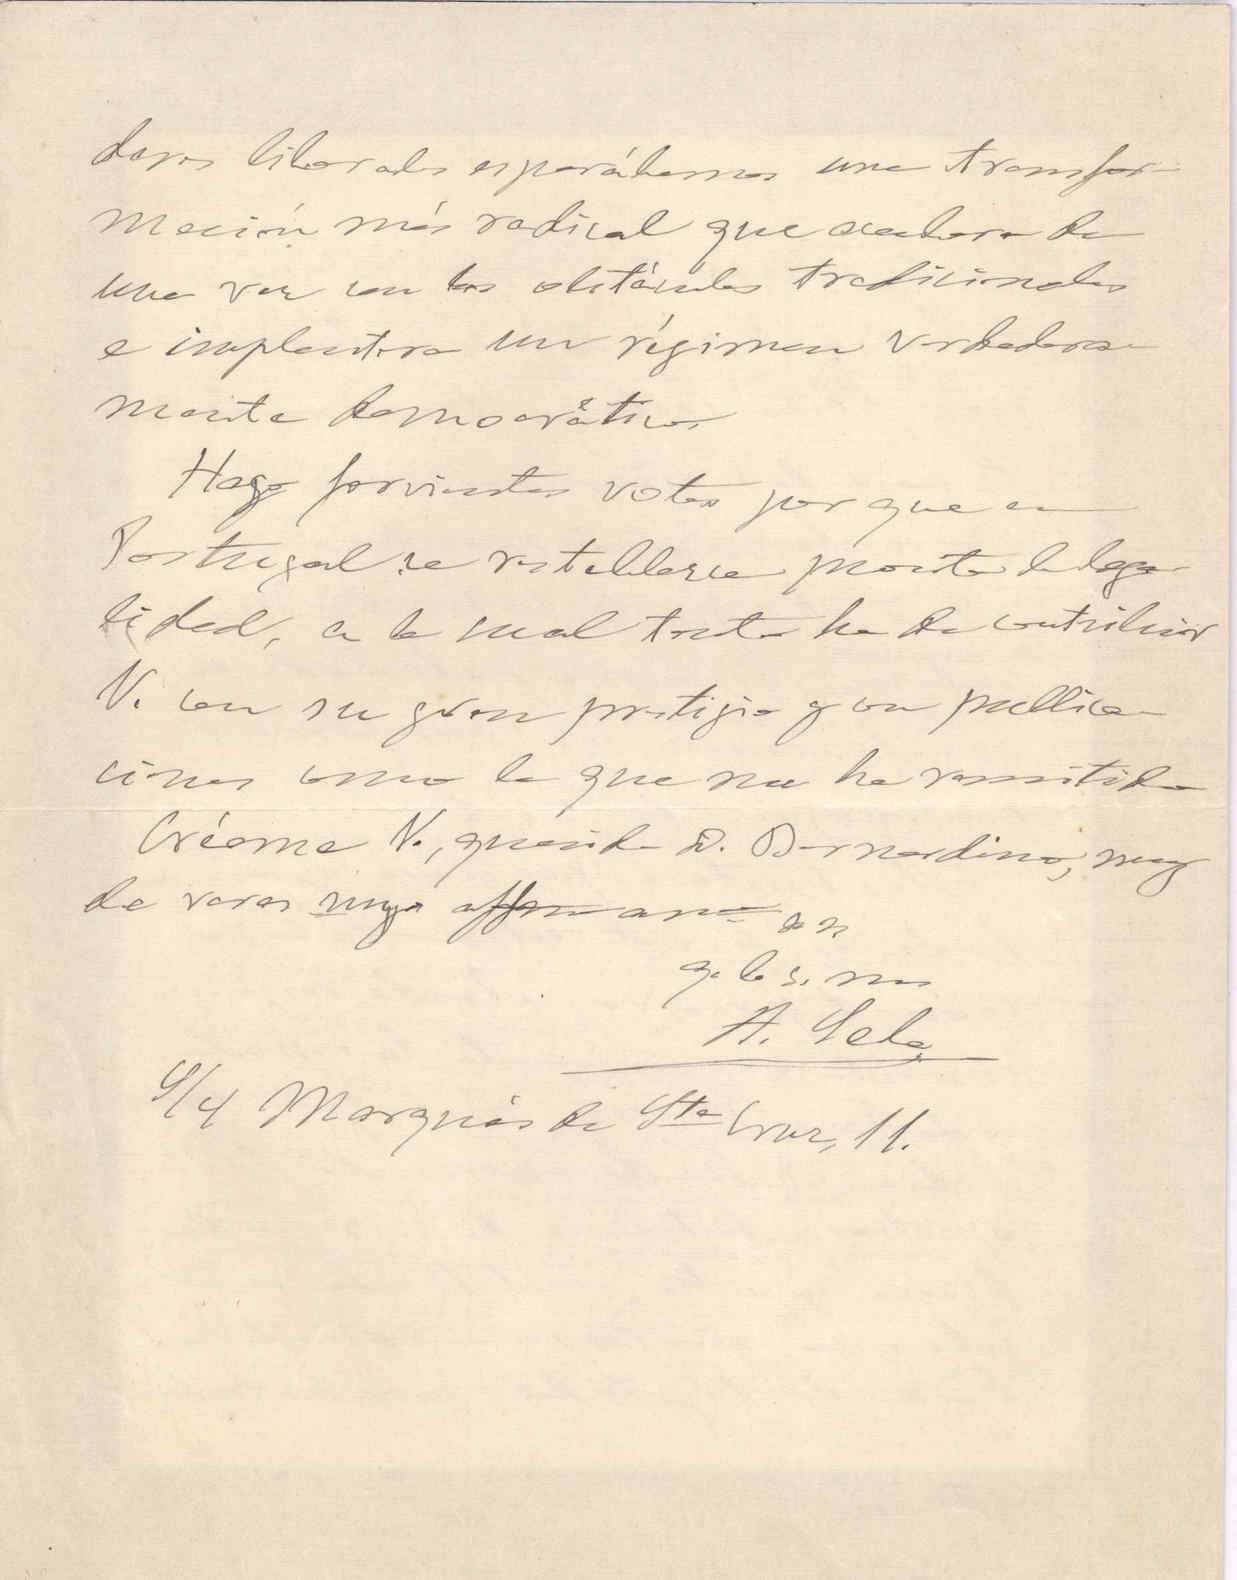 deros liberales esperábamos una transfor-
mación más radical que acabara de
una vez con los obstáculos tradicionales
e implantara un régimen verdadera-
mente democrático.
Hago fervientes votos porque en
Portugal se restablezca pronto la lega-
lidad, a la cual tanto ha de contribuir
V. con su gran prestigio y con publica-
ciones como la que me ha remitido
Créame V., querido D. Bernardino, muy
de veras suyo affmo
q. l. s. m.
A. Sela
S/c Marqués de Sta Cruz, 11.